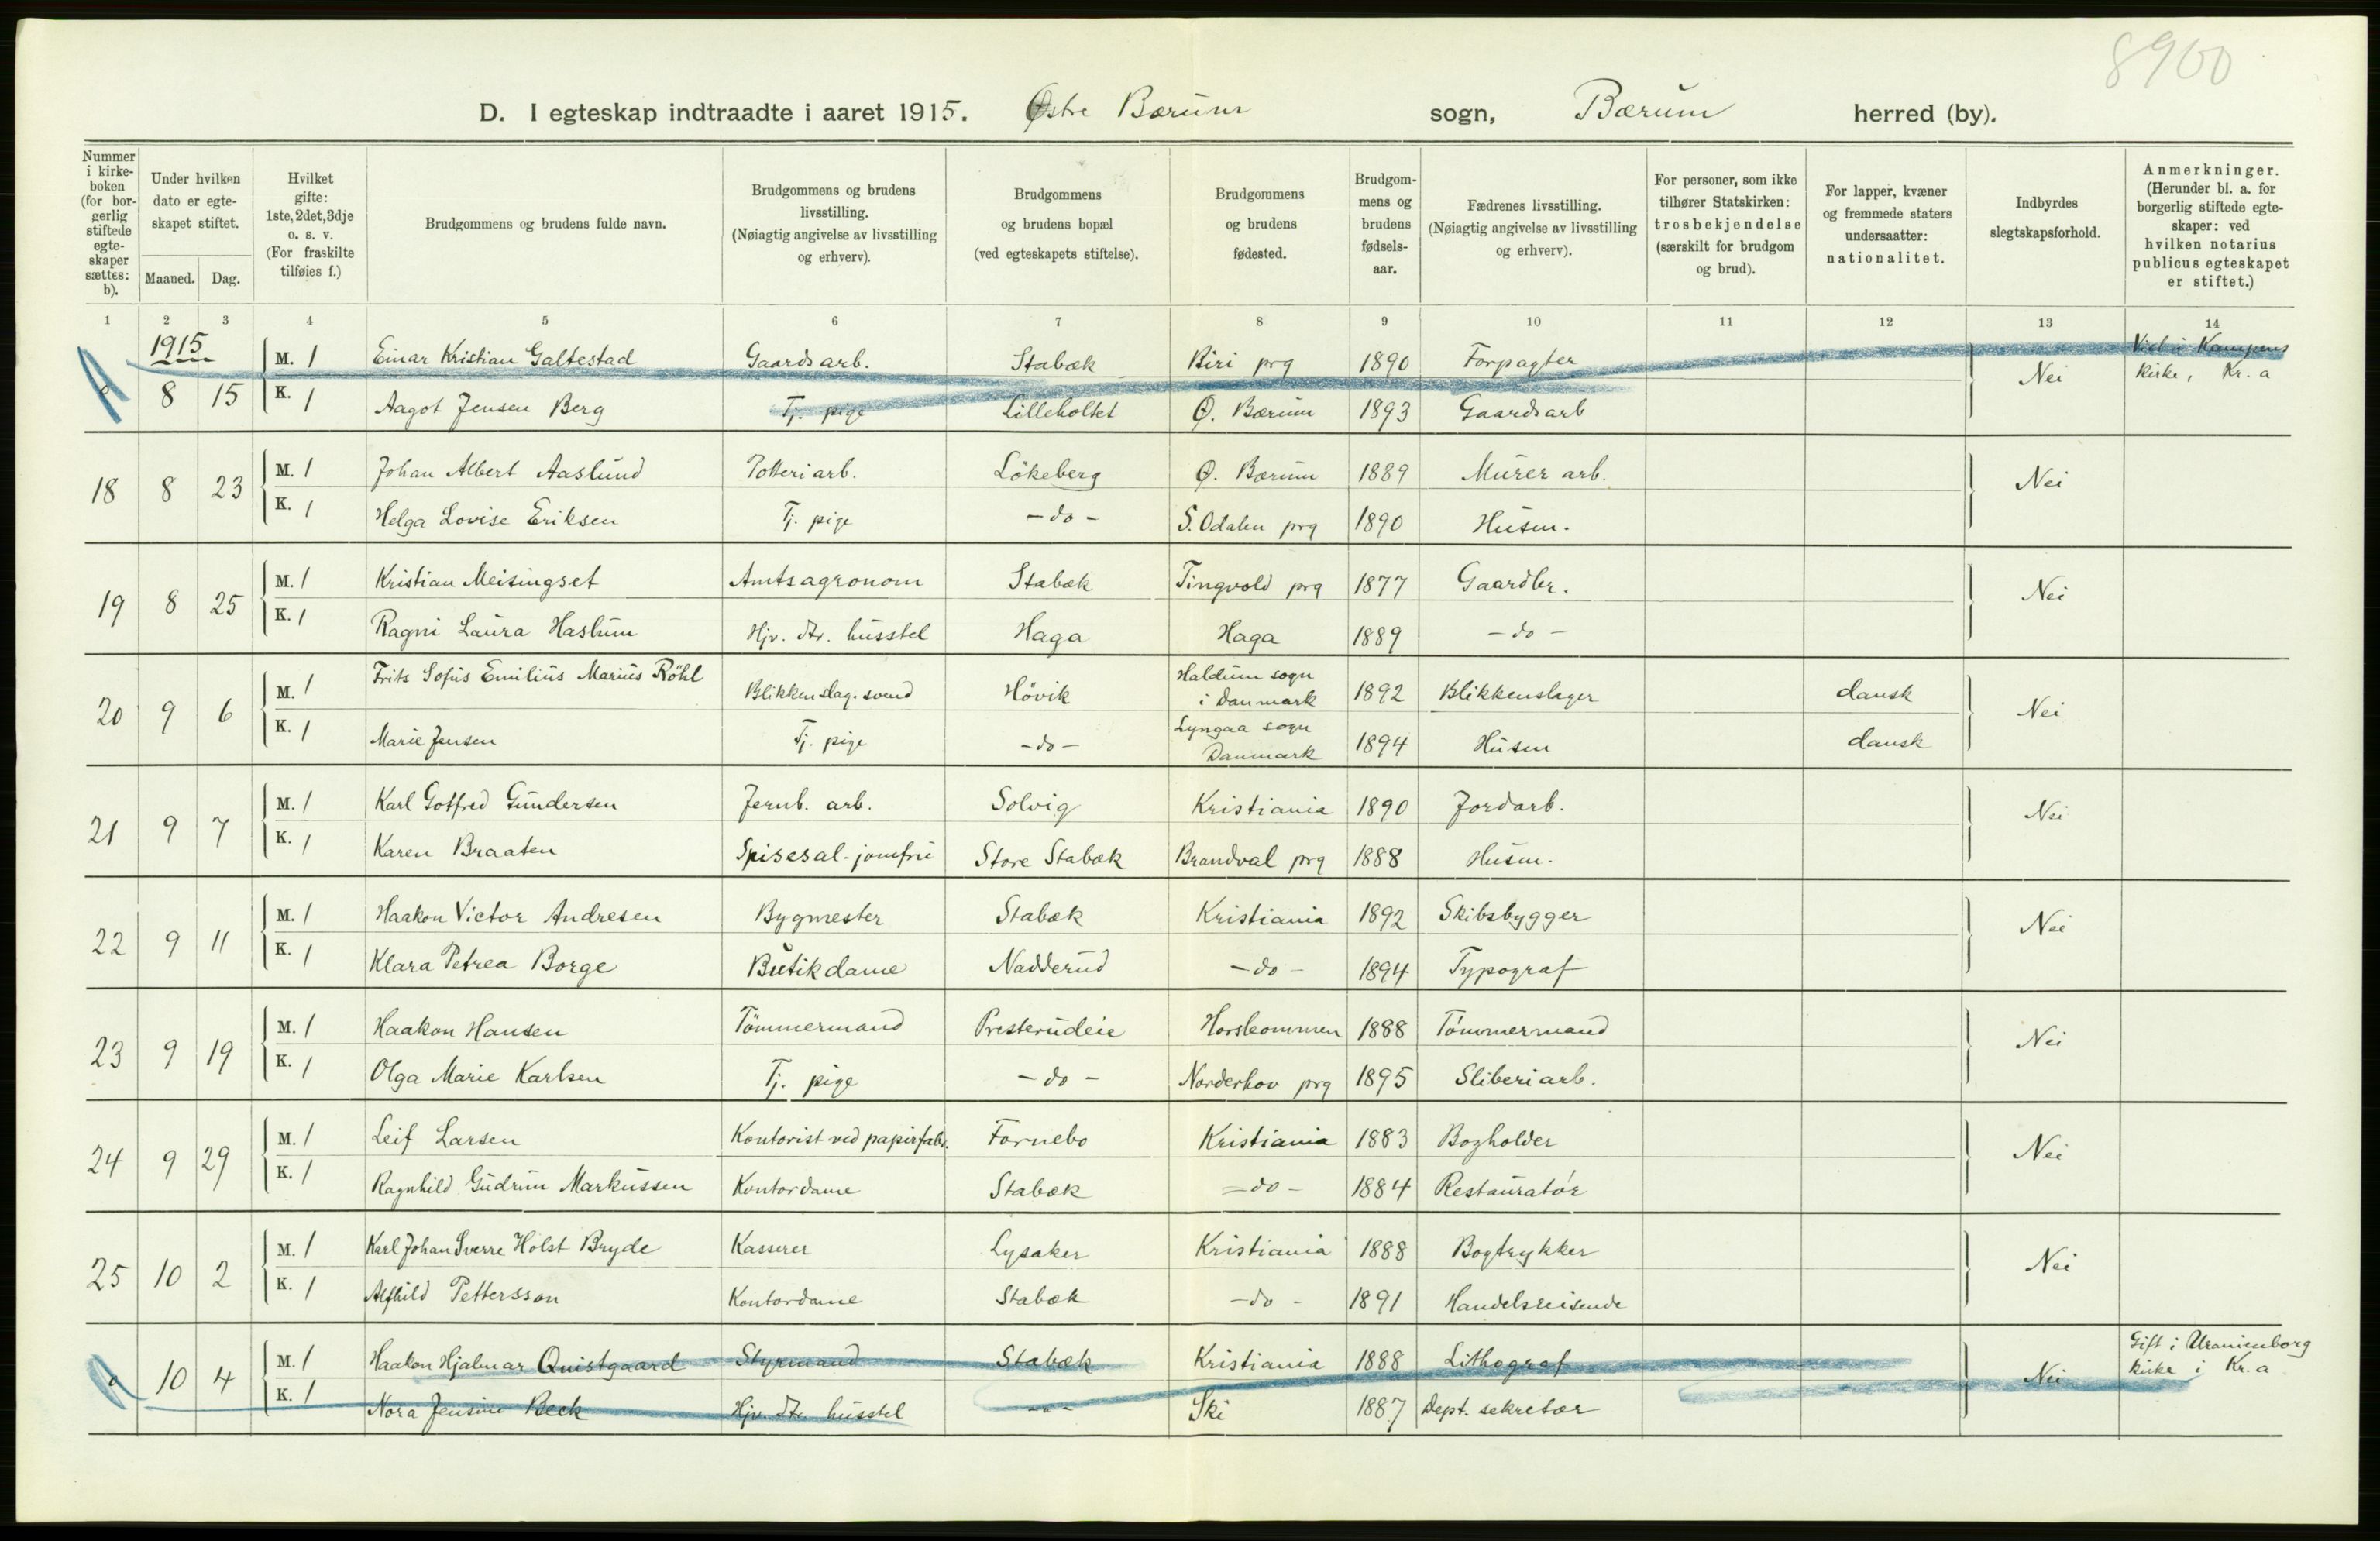 8900
D. I egteskap indtraadte i aaret 1915. Østre Bærum sogn, Bærum herred (by).
Nummer i kirkeboken (for borgerlig stiftede egteskaper sættes: b).
Under hvilken dato er egteskapet stiftet.
Maaned. Dag.
Hvilket gifte: 1ste, 2det, 3dje o. s. v. (For fraskilte tilføies f.)
Brudgommens og brudens fulde navn.
Brudgommens og brudens livsstilling. (Nøiagtig angivelse av livsstilling og erhverv).
Brudgommens og brudens bopæl (ved egteskapets stiftelse).
Brudgommens og brudens fødested.
Brudgommens og brudens fødselsaar.
Fædrenes livsstilling. (Nøiagtig angivelse av livsstilling og erhverv).
For personer, som ikke tilhører Statskirken: trosbekjendelse (særskilt for brudgom og brud).
For lapper, kvæner og fremmede staters undersaatter: nationalitet.
Indbyrdes slegtskapsforhold.
Anmerkninger. (Herunder bl. a. for borgerlig stiftede egteskaper: ved hvilken notarius publicus egteskapet er stiftet.)
1 2 3 4 5 6 7 8 9 10 11 12 13 14
1915
o 8 15 M. 1 Einar Kristian Galtestad Gaardsarb. Stabæk Biri prg 1890 Forpagter Nei Viet i Kampens kirke, Kr.a
K. 1 Aagot Jensen Berg Tj. pige Lilleholtet Ø. Bærum 1893 Gaardsarb
18 8 23 M. 1 Johan Albert Aaslund Potteriarb. Lökeberg Ø. Bærum 1889 Murer arb. Nei
K. 1 Helga Lovise Eriksen Tj. pige - do - S. Odalen prg 1890 Husm.
19 8 25 M. 1 Kristian Meisingset Amtsagronom Stabæk Tingvold prg 1877 Gaardbr. Nei
K. 1 Ragni Laura Haslum Hjv. dtr. husstel Haga Haga 1889 - do -
20 9 6 M. 1 Frits Sofus Emilius Marius Röhl Blikkenslag. svend Hövik Haldum sogn i Danmark 1892 Blikkenslager dansk Nei
K. 1 Marie Jensen Tj. pige - do - Lyngaa sogn Danmark 1894 Husm dansk
21 9 7 M. 1 Karl Gotfred Gundersen Jernb. arb. Solvig Kristiania 1890 Jordarb. Nei
K. 1 Karen Braaten Spisesal-jomfru Store Stabæk Brandval prg 1888 Husm.
22 9 11 M. 1 Haakon Victor Andresen Bygmester Stabæk Kristiania 1892 Skibsbygger Nei
K. 1 Klara Petrea Borge Butikdame Nadderud - do - 1894 Typograf
23 9 19 M. 1 Haakon Hansen Tömmermand Presterudeie 1888 Tömmermand Nei
K. 1 Olga Marie Karlsen Tj. pige - do - Norderhov prg 1895 Sliberiarb.
24 9 29 M. 1 Leif Larsen Kontorist ved papirfabr. Fornebo Kristiania 1883 Bogholder Nei
K. 1 Ragnhild Gudrun Markussen Kontordame Stabæk - do - 1884 Restauratör
25 10 2 M. 1 Karl Johan Sverre Holst Bryde Kasserer Lysaker Kristiania 1888 Bogtrykker Nei
K. 1 Alfhild Pettersson Kontordame Stabæk - do - 1891 Handelsreisende
o 10 4 M. 1 Haakon Hjalmar Quistgaard Styrmand Stabæk Kristiania 1888 Lithograf Nei Gift i Uranienborg kirke i Kr.a
K. 1 Nora Jensine Beck Hjv. dtr. husstel - " - Ski 1887 Dept. sekretær